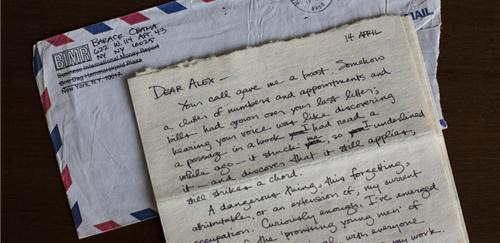 BIMR
BARACK OBAMA
622 W. 114 APT. 43
NY NY 10025
Business International Money Report
One Dag Hammarskjold Plaza
New York, N.Y. 10017
MAIL
14 APRIL
DEAR ALEX -
Your call gave me a boost. Somehow
a clutter of numbers and appointments and
bills had grown over your last letters;
hearing your voice was like discovering
a passage in a book I had read a
while ago - it struck me, so I underlined
it - and discover that it still applies,
still strikes a chord.
A dangerous thing, this forgetting,
attributable, or an extension of, my current
occupation. Curiously enough, I've emerged
of the "promising young men" of
with everyone
my work.